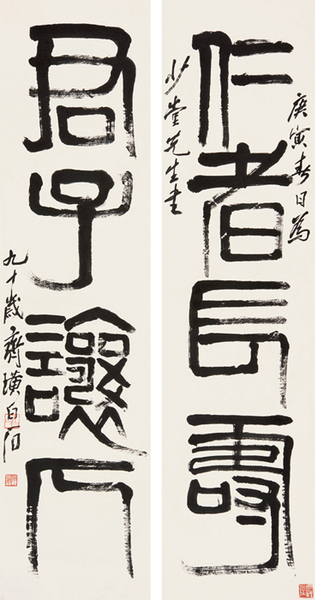 仁者長壽
庚寅春日為
少堂先生書
君子讓人
九十歲齊璜白石